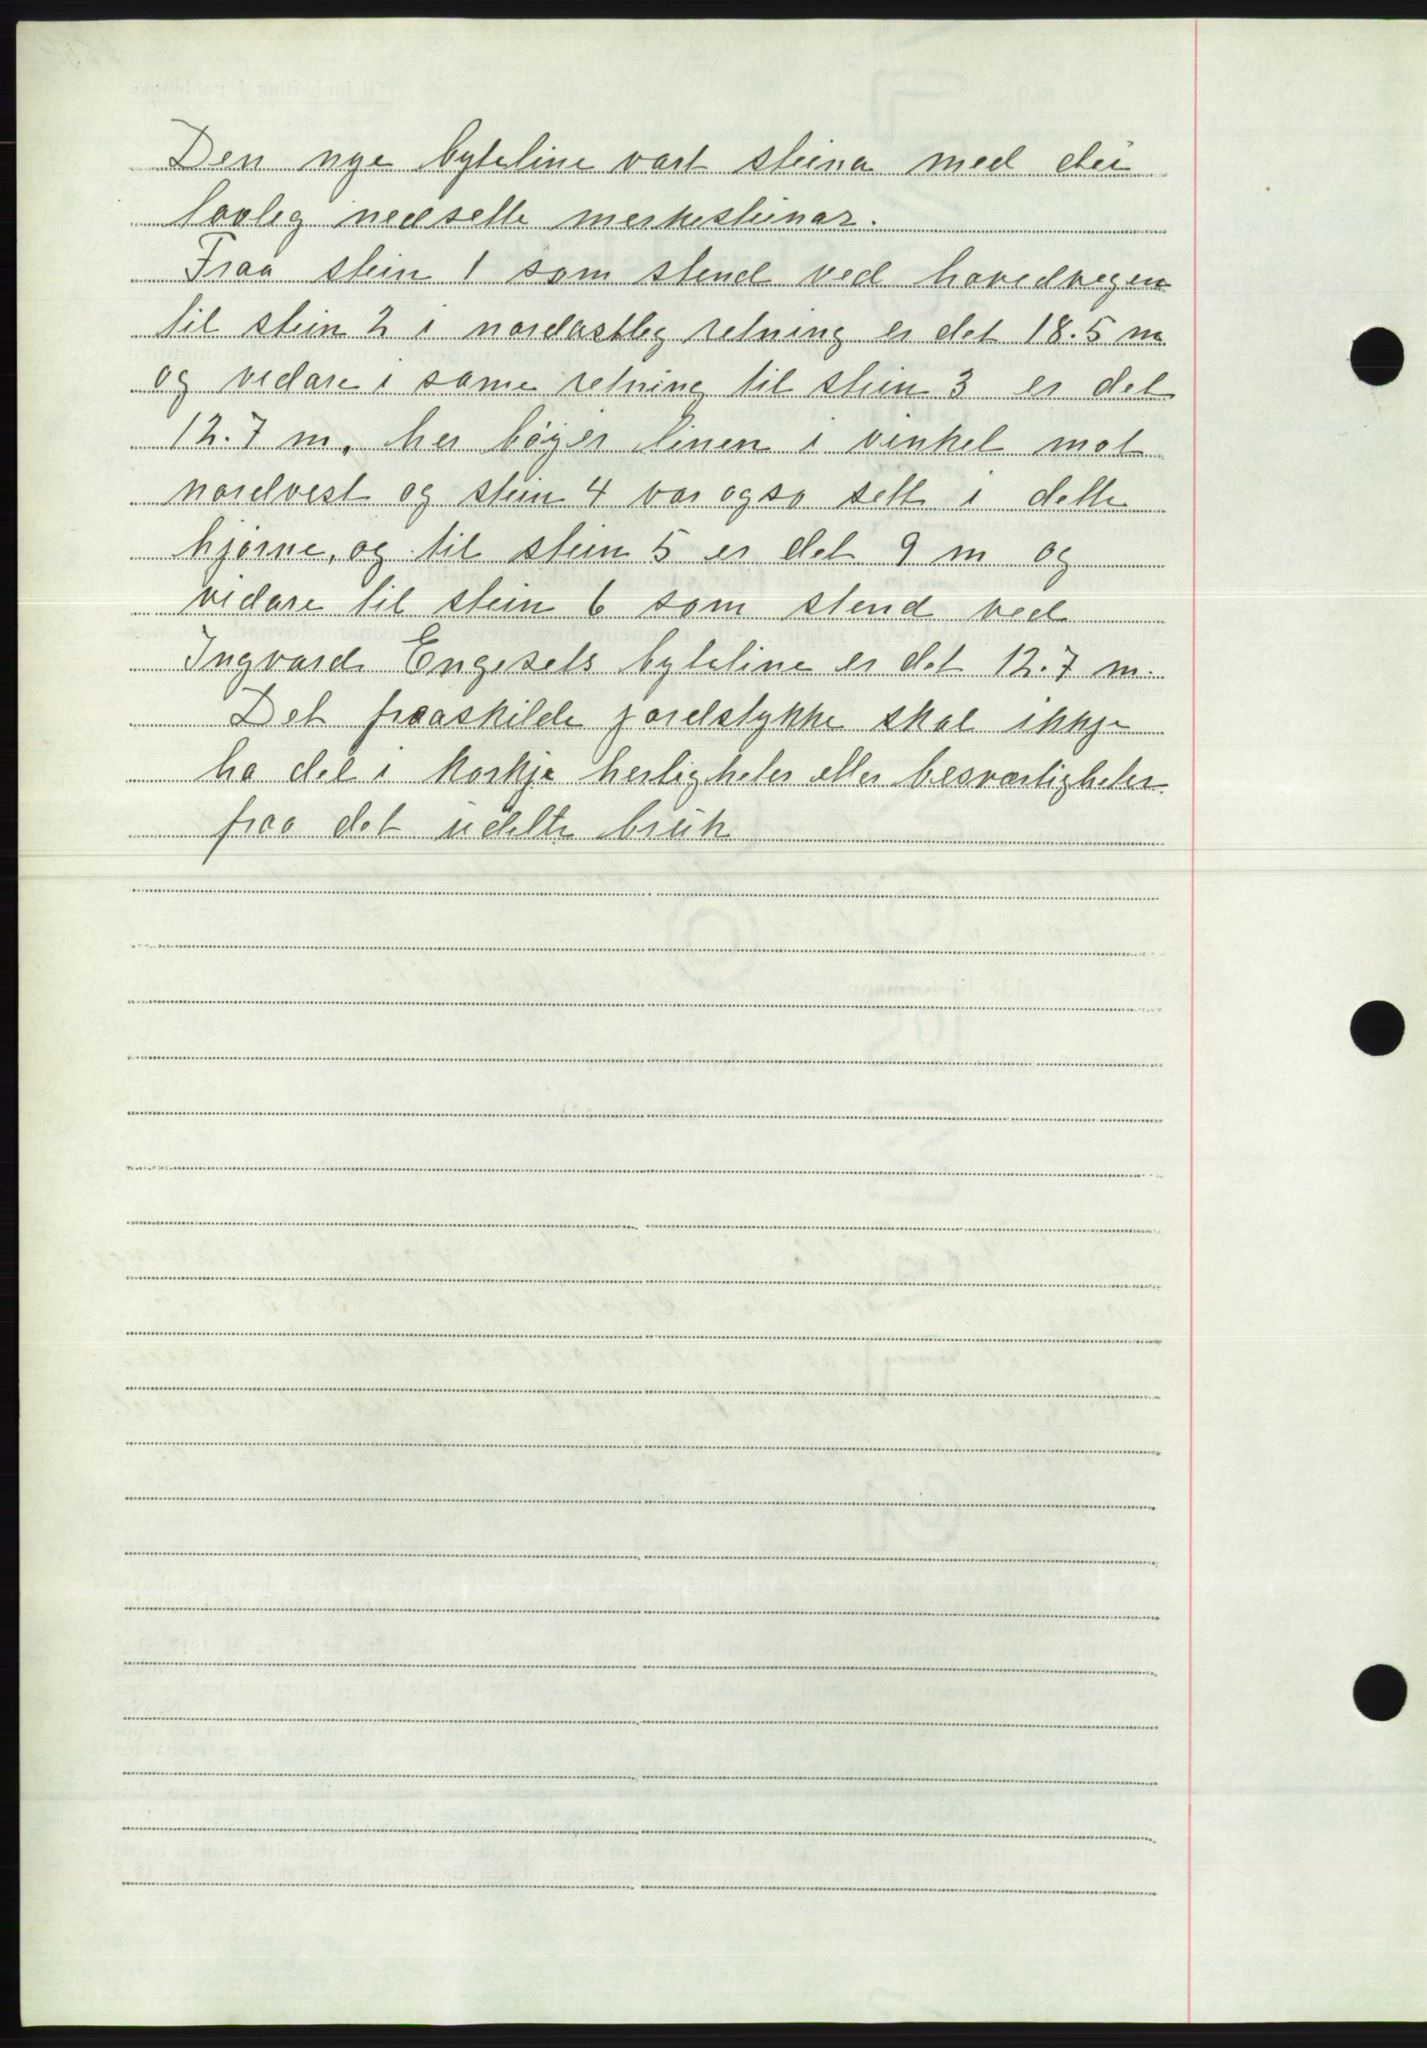 Den nye byteline vart steina med dei
lovleg nedsette merkesteinar.
Fraa stein 1 som stend ved hovedvegen
til stein 2 i nordastleg retning er det 18.5 m
og vidare i same retning til stein 3 er det
12.7 m, her bøyer linen i vinkel mot
nordvest og stein 4 var ogso sett i dette
hjørne, og til stein 5 er det 9 m og
vidare til stein 6 som stend ved
Ingvard Engesets byteline er det 12.7 m.
Det fraaskilde jordstykke skal ikkje
ha del i korkje herligheter eller besværligheter
fraa det udelte bruk